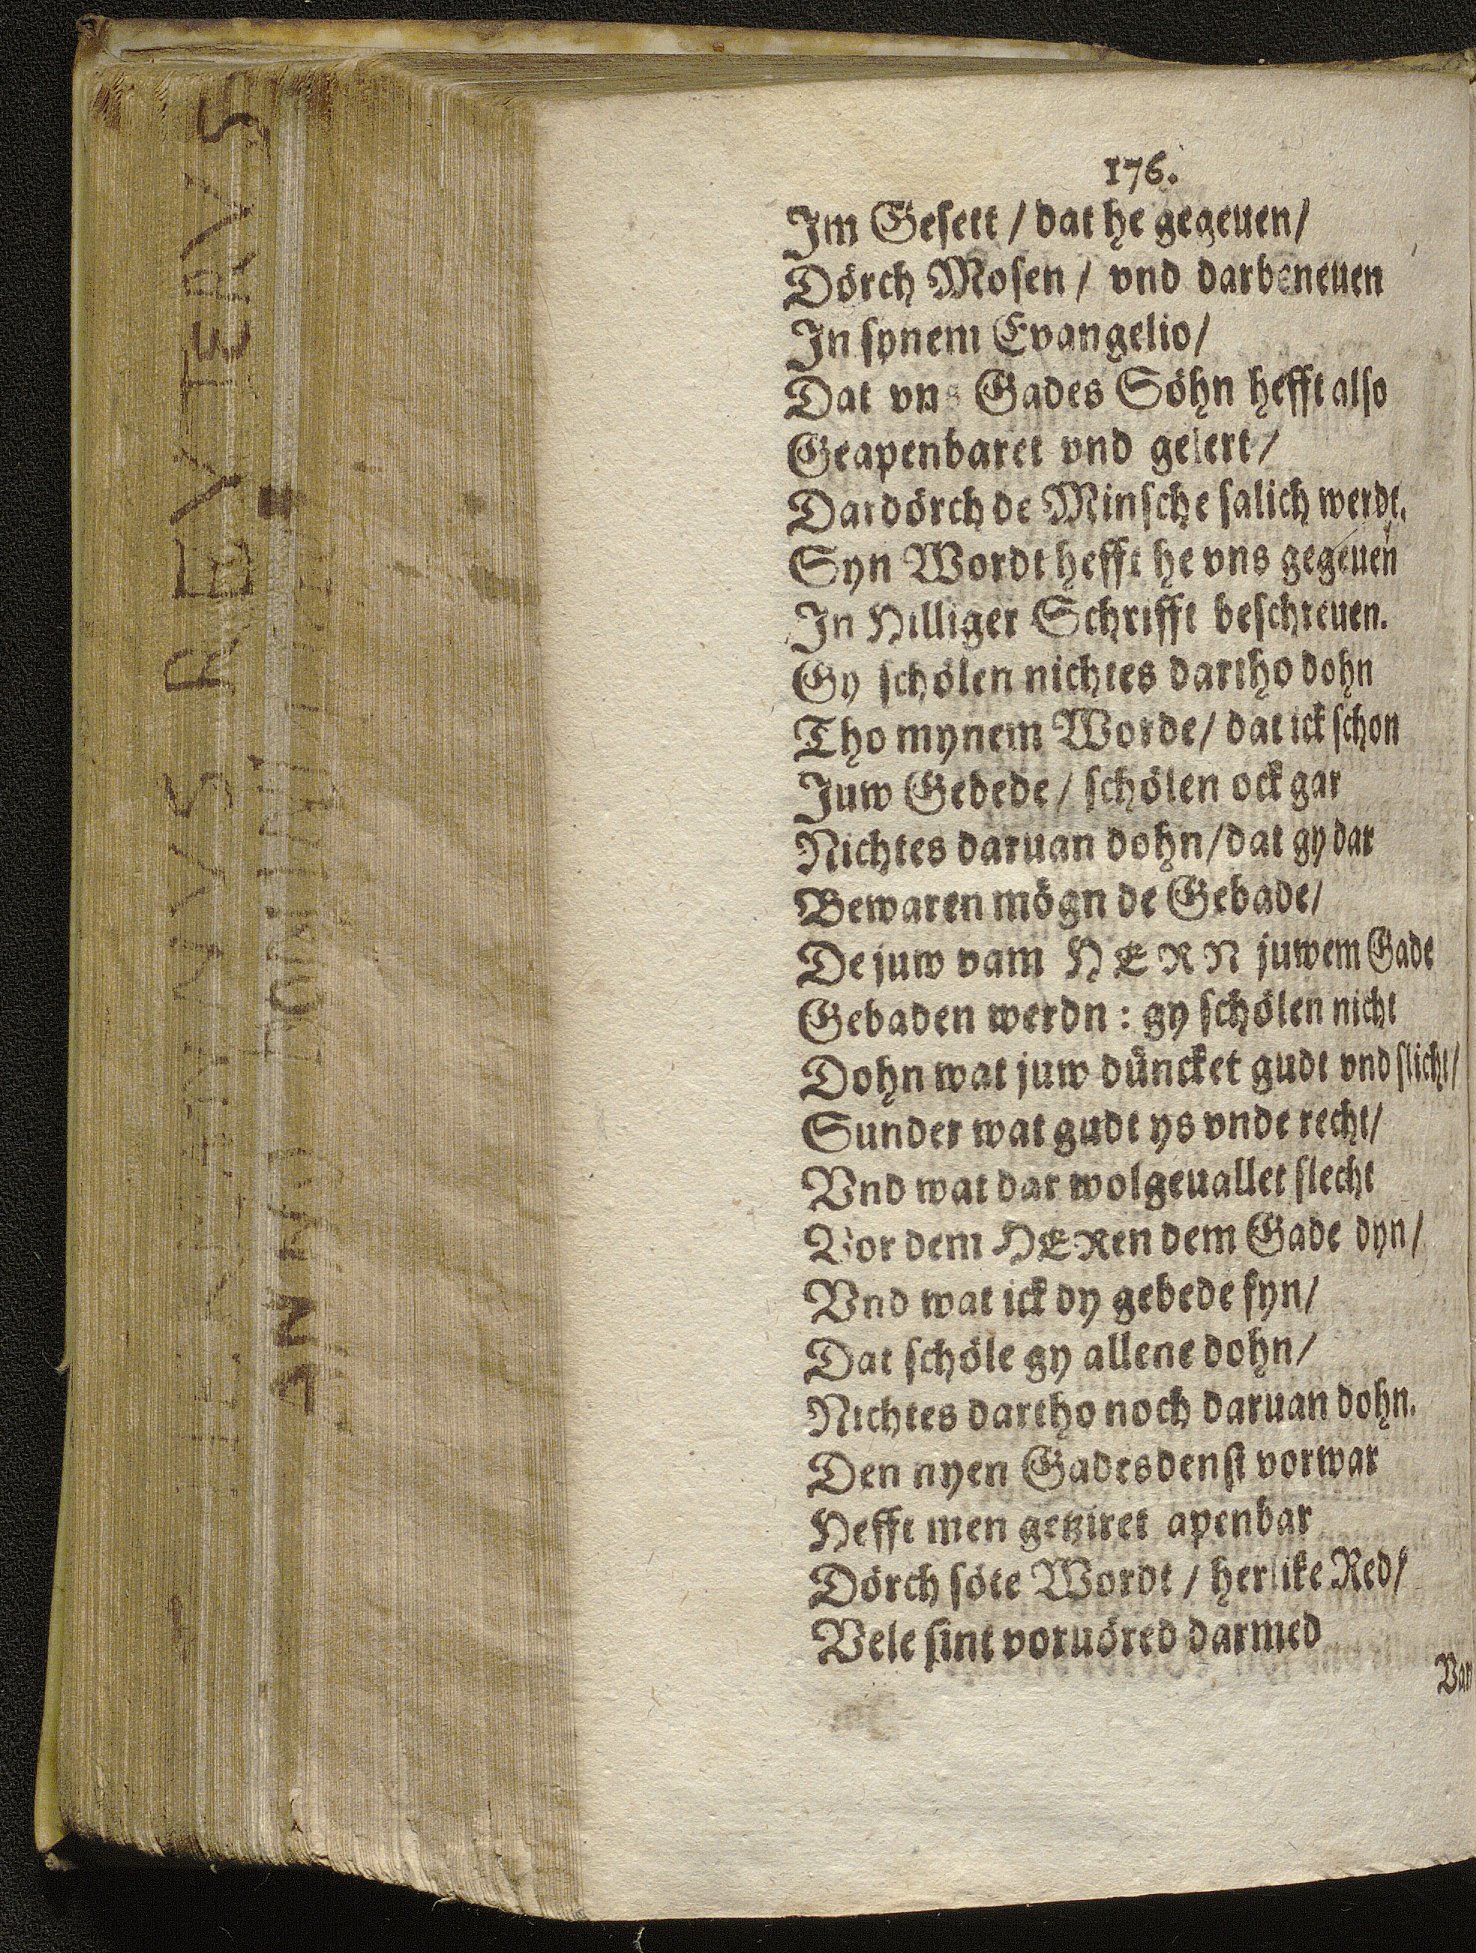 176.
Im Gesett / dat he gegeuen/
Dörch Mosen / vnd darbeneuen
In synem Evangelio/
Dat vns Gades Söhn hefft also
Geapenbaret vnd gelert/
Dardörch de Minsche salich werdt.
Syn Wordt hefft he vns gegeuen
In Hilliger Schrifft beschreuen.
Gy schölen nichtes dartho dohn
Tho mynem Worde/ dat ick schon
Juw Gedede/ schölen ock gar
Nichtes daruan dohn/dat gy dar
Bewaren mögn de Gebade/
De juw vam HERN juwem Gade
Gebaden werdn : gy schölen nicht
Dohn wat juw düncket gudt vnd slicht/
Sunder wat gudt ys vnde recht/
Vnd wat dar wolgeuallet slecht
Vor dem HERen dem Gade dyn/
Vnd wat ick dy gebede fyn/
Dat schöle gy allene dohn/
Nichtes dartho noch daruan dohn.
Den nyen Gadesdenst vorwar
Hefft men getziret apenbar
Dörch söte Wordt / herlike Red/
Vele sint voruöred darmed
Van
REYTERVS
ANNO DOMINI